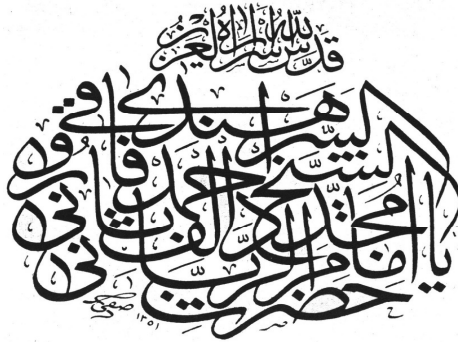 قدس الله سره العزيز
يا حضرت امام رباني
مجدد الف ثاني
الشيخ احمد فاروقي
السرهندي
١٣٥١